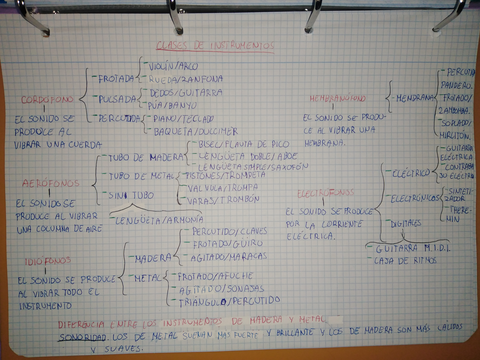 CLASES DE INSTRUMENTOS
CORDÓFONO
EL SONIDO SE
PRODUCE AL
VIBRAR UNA CUERDA
- FROTADA
- VIOLÍN/ARCO
- RUEDA/ZANFONA
- PULSADA
- DEDOS/GUITARRA
- PÚA/BANYO
- PERCUTIDA
- PIANO/TECLADO
- BAQUETA/DULCIMER
AERÓFONOS
EL SONIDO SE
PRODUCE AL VIBRAR
UNA COLUMNA DE AIRE
- TUBO DE MADERA
- BISEL/FLAUTA DE PICO
- LENGÜETA DOBLE/OBOE
- LENGÜETA SIMPLE/SAXOFÓN
- TUBO DE METAL
- PISTONES/TROMPETA
- VALVULA/TROMPA
- VARAS/TROMBÓN
- SIN TUBO
- LENGÜETA/ARMONÍA
IDIÓFONOS
EL SONIDO SE PRODUCE
AL VIBRAR TODO EL
INSTRUMENTO
- MADERA
- PERCUTIDO/CLAVES
- FROTADO/GÜIRO
- AGITADO/MARACAS
- METAL
- FROTADO/AFUCHE
- AGITADO/SONAJAS
- TRIÁNGULO/PERCUTIDO
MEMBRANÓFONO
EL SONIDO SE PRODU-
CE AL VIBRAR UNA
MEMBRANA.
- MEMBRANA
- PERCUTIDO
PANDERO.
- FROTADO/
ZAMBOMBA.
- SOPLADO
MIRLITÓN.
ELECTRÓFONOS
EL SONIDO SE PRODUCE
POR LA CORRIENTE
ELÉCTRICA.
- ELÉCTRICO
- GUITARRA
ELÉCTRICA
- CONTRABA
ELÉCTRICO
- ELECTRÓNICOS
- SINTETI-
ZADOR
- THERE-
MIN
- DIGITALES
- GUITARRA M.I.D.I
- CAJA DE RITMOS.
DIFERENCIA ENTRE LOS INSTRUMENTOS DE MADERA Y METAL
SONORIDAD. LOS DE METAL SUENAN MÁS FUERTE Y BRILLANTE Y LOS DE MADERA SON MÁS CALIDOS
Y SUAVES.